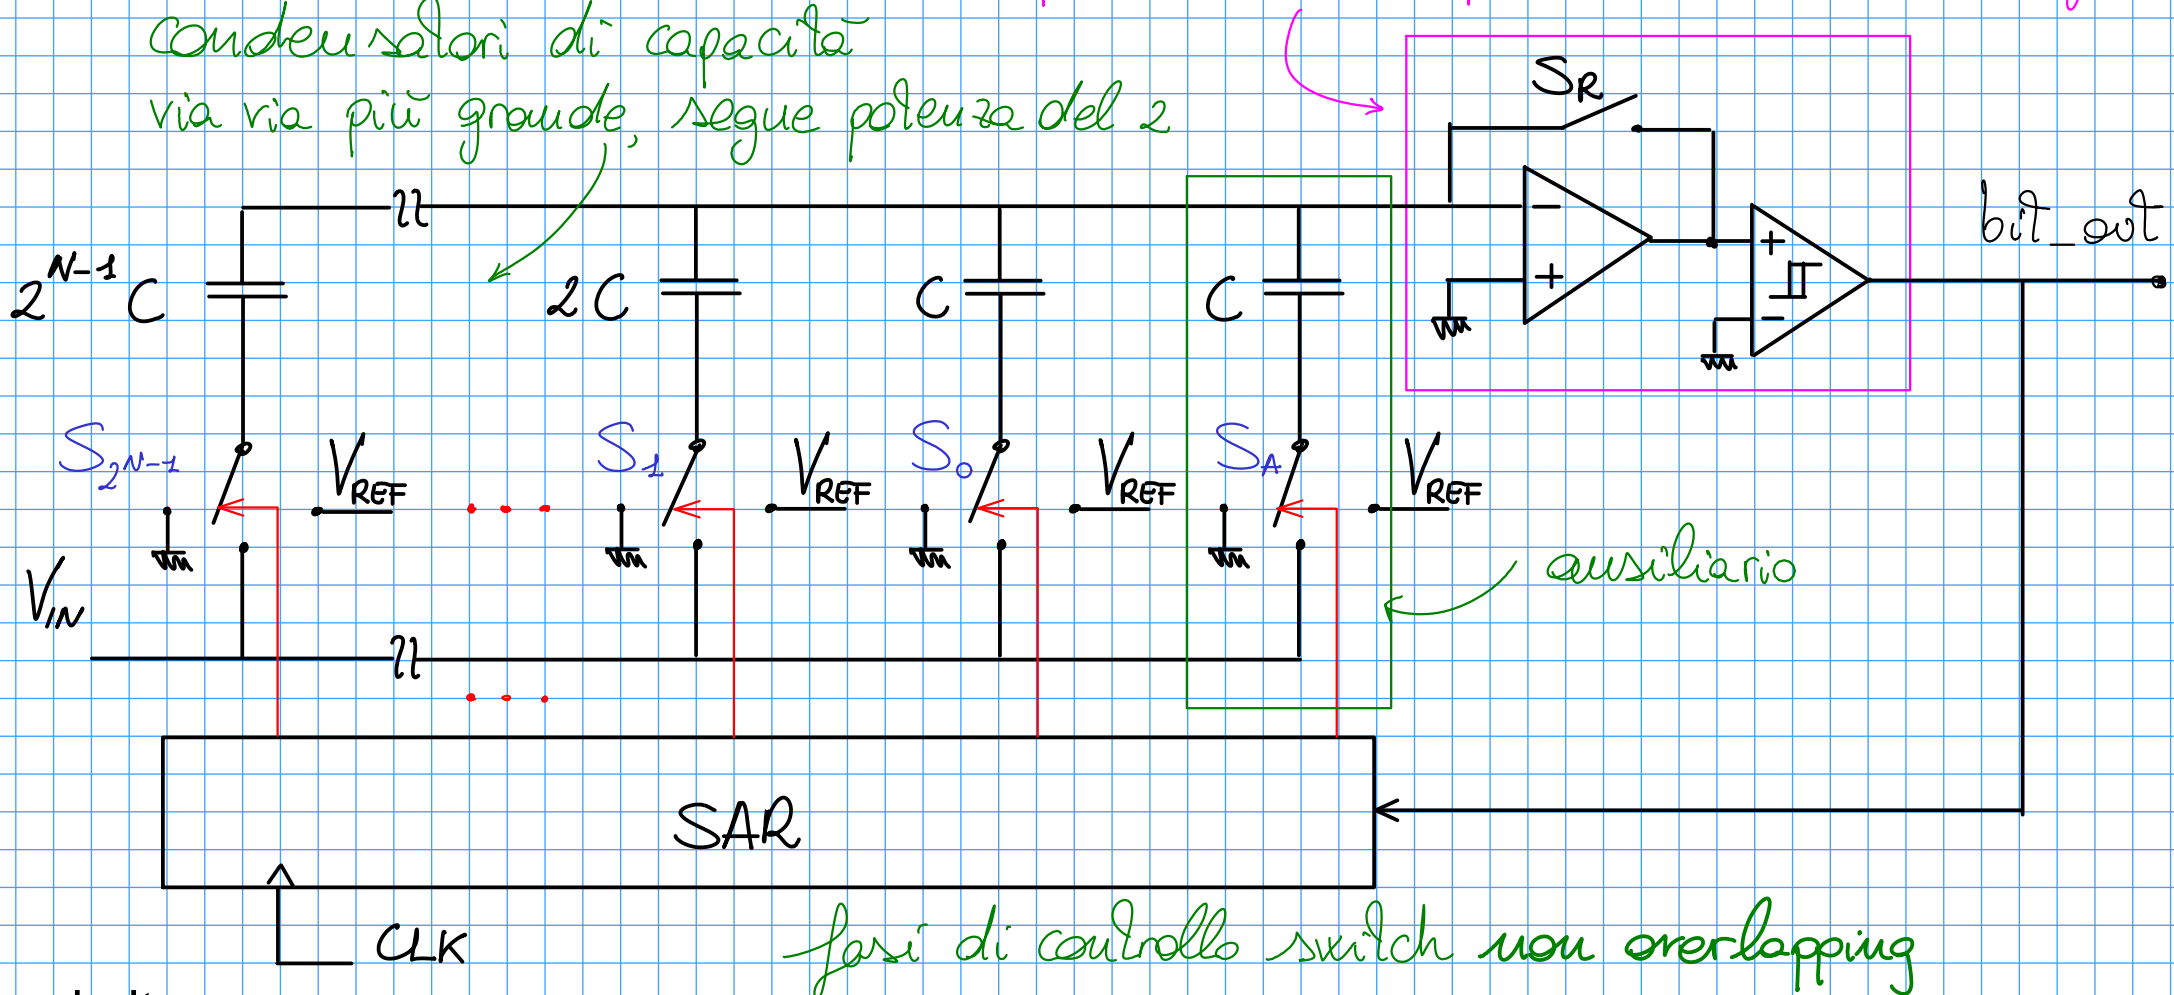 condensatori di capacità
via via più grande, segue potenza del 2
SR
bit_out
2^N-1 C
2C
C
C
S2N-1
VREF
S1
VREF
S0
VREF
SA
VREF
ausiliario
VIN
SAR
CLK
fasi di controllo switch non overlapping